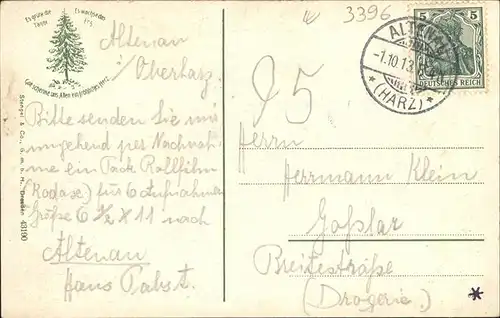 Es grüne die Tanne
Es wachse das Erz
Gott schenke uns Allen ein fröhliches Herz
Stengel & Co., G. m. b. H., Dresden 43190
Altenau
i/Oberharz.
Bitte senden Sie mir
umgehend per Nachnah-
me ein Pack Rollfilm
(Kodase) für 6 Aufnahmen
Größe 6 ½ X 11 nach
Altenau
Hans Pabst.
3396
95
ALTENAU
-1.10.13
*(HARZ)*
5 5
DEUTSCHES REICH
Herrn
Herrmann Klein
Goßlar
Breitestraße
(Drogerie.)
*